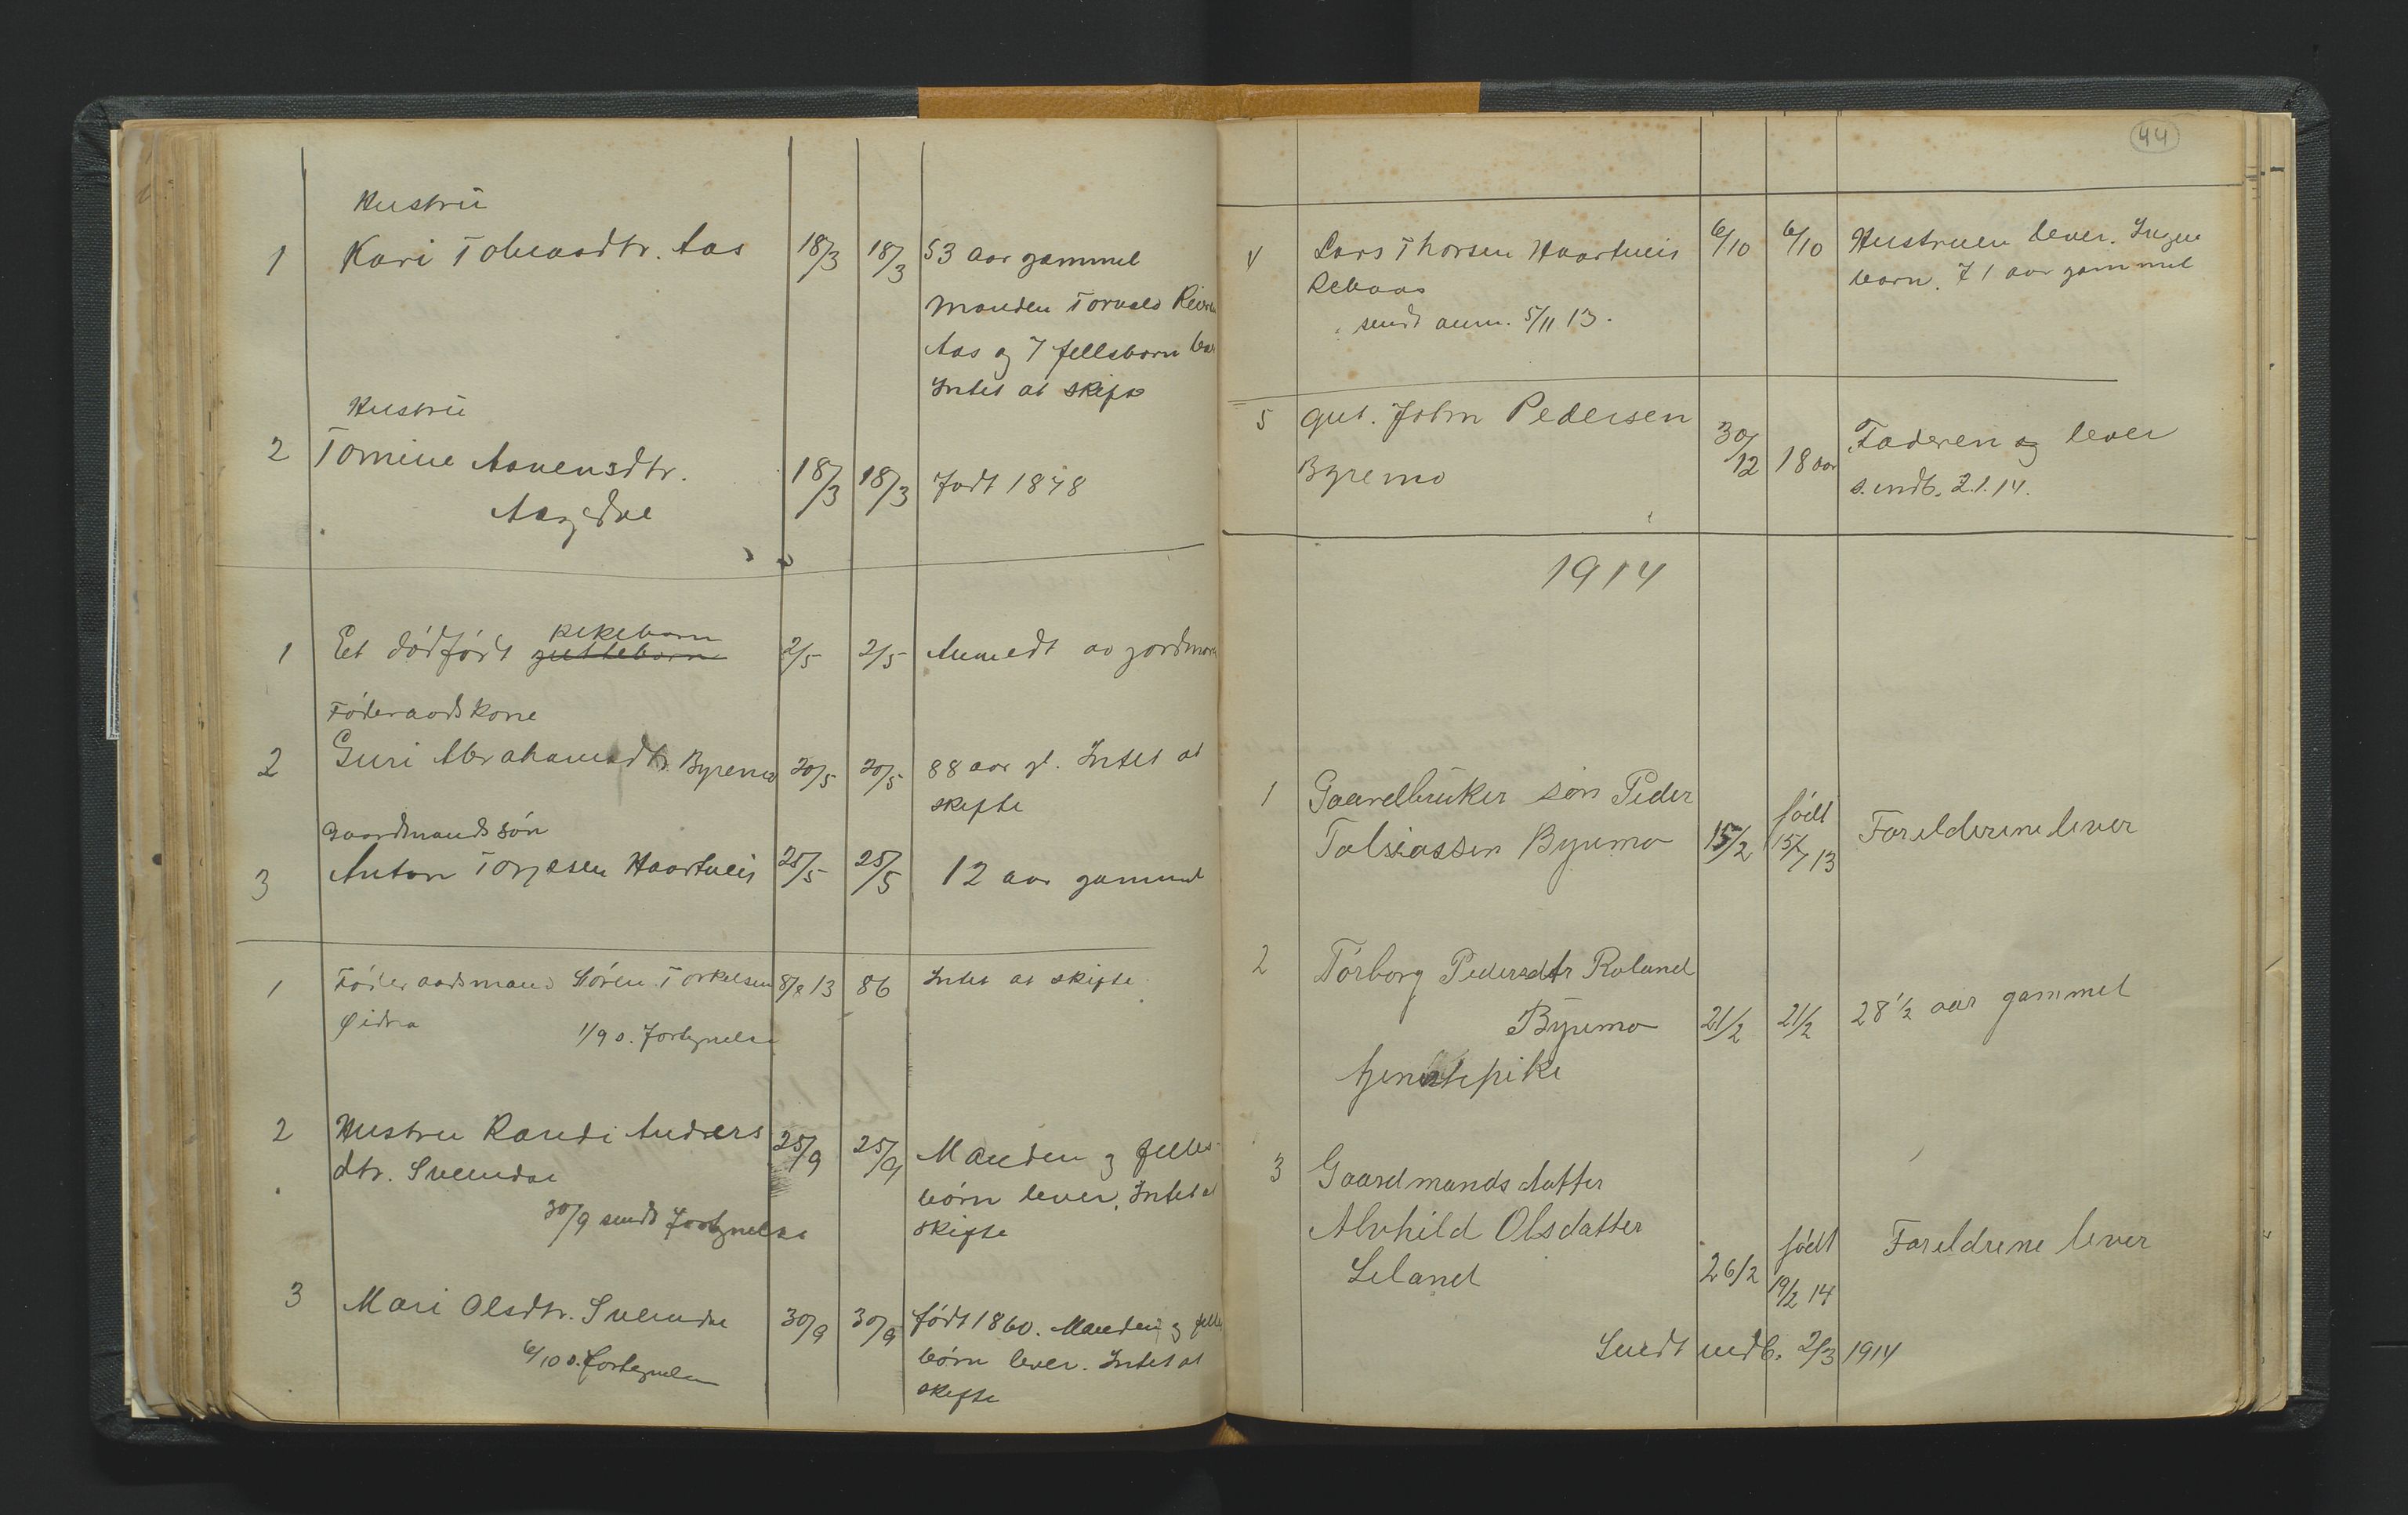 Hustru
1 Kari Tobiasdtr. Aas 18/3 18/3 53 aar gammel
Manden Torvald
Aas og 7 fellsbarn
Intet at skifte
Hustru
2 Tomine Aanensdtr. 18/3 18/3 Født
Aagedal
1 Et dødfødt pikebarn 2/5 2/5 Anmeldt av jordmor
guttebarn
Føderaadskone
2 Guri Abrahamsdtr. Byremo 20/5 20/5 88 aar gl. Intet at
skifte
Gaardmandssøn
3 Anton Torjesen Haartveit 25/5 25/5 12 aar gammel
1 Føderaadsmand Søren Torkelsen 8/8 13 86 Intet at skifte
Øidna 1/9 s. Fortegnelse
2 Hustru Randi Anders 25/9 25/9 Manden og felles
dtr. Sveindal børn lever. Intet at
30/9 sendt Fortegnelse skifte
3 Mari Olsdtr. Sveindal 30/9 30/9 født 1860. Manden og felles
6/10 s. fortegnelse børn lever. Intet at
skifte
44
4 Lars Thorsen Haartveit 6/10 6/10 Hustruen lever. Ingen
barn. 71 aar gammel
sendt anm. 5/11 13.
5 gut. John Pedersen 30/12 18 aar Faderen og lever
Byremo s. indb. 2.1.14.
1914
1 Gaardbruker søn Peder født
Tobiassen Byremo 15/2 15/7 13 Foreldrene lever
2 Torborg Pedersdtr Roland
Byremo 21/2 21/2 28 1/2 aar gammel
tjenestepike
3 Gaardmands datter
Alvhild Olsdatter født Foreldrene lever
Leland 26/2 19/2 14
Sendt indb. 2/3 1914